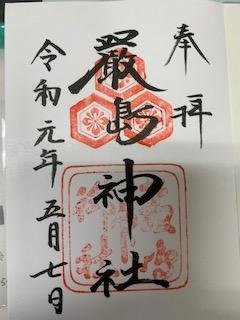 奉拝
厳島神社
令和元年五月七日